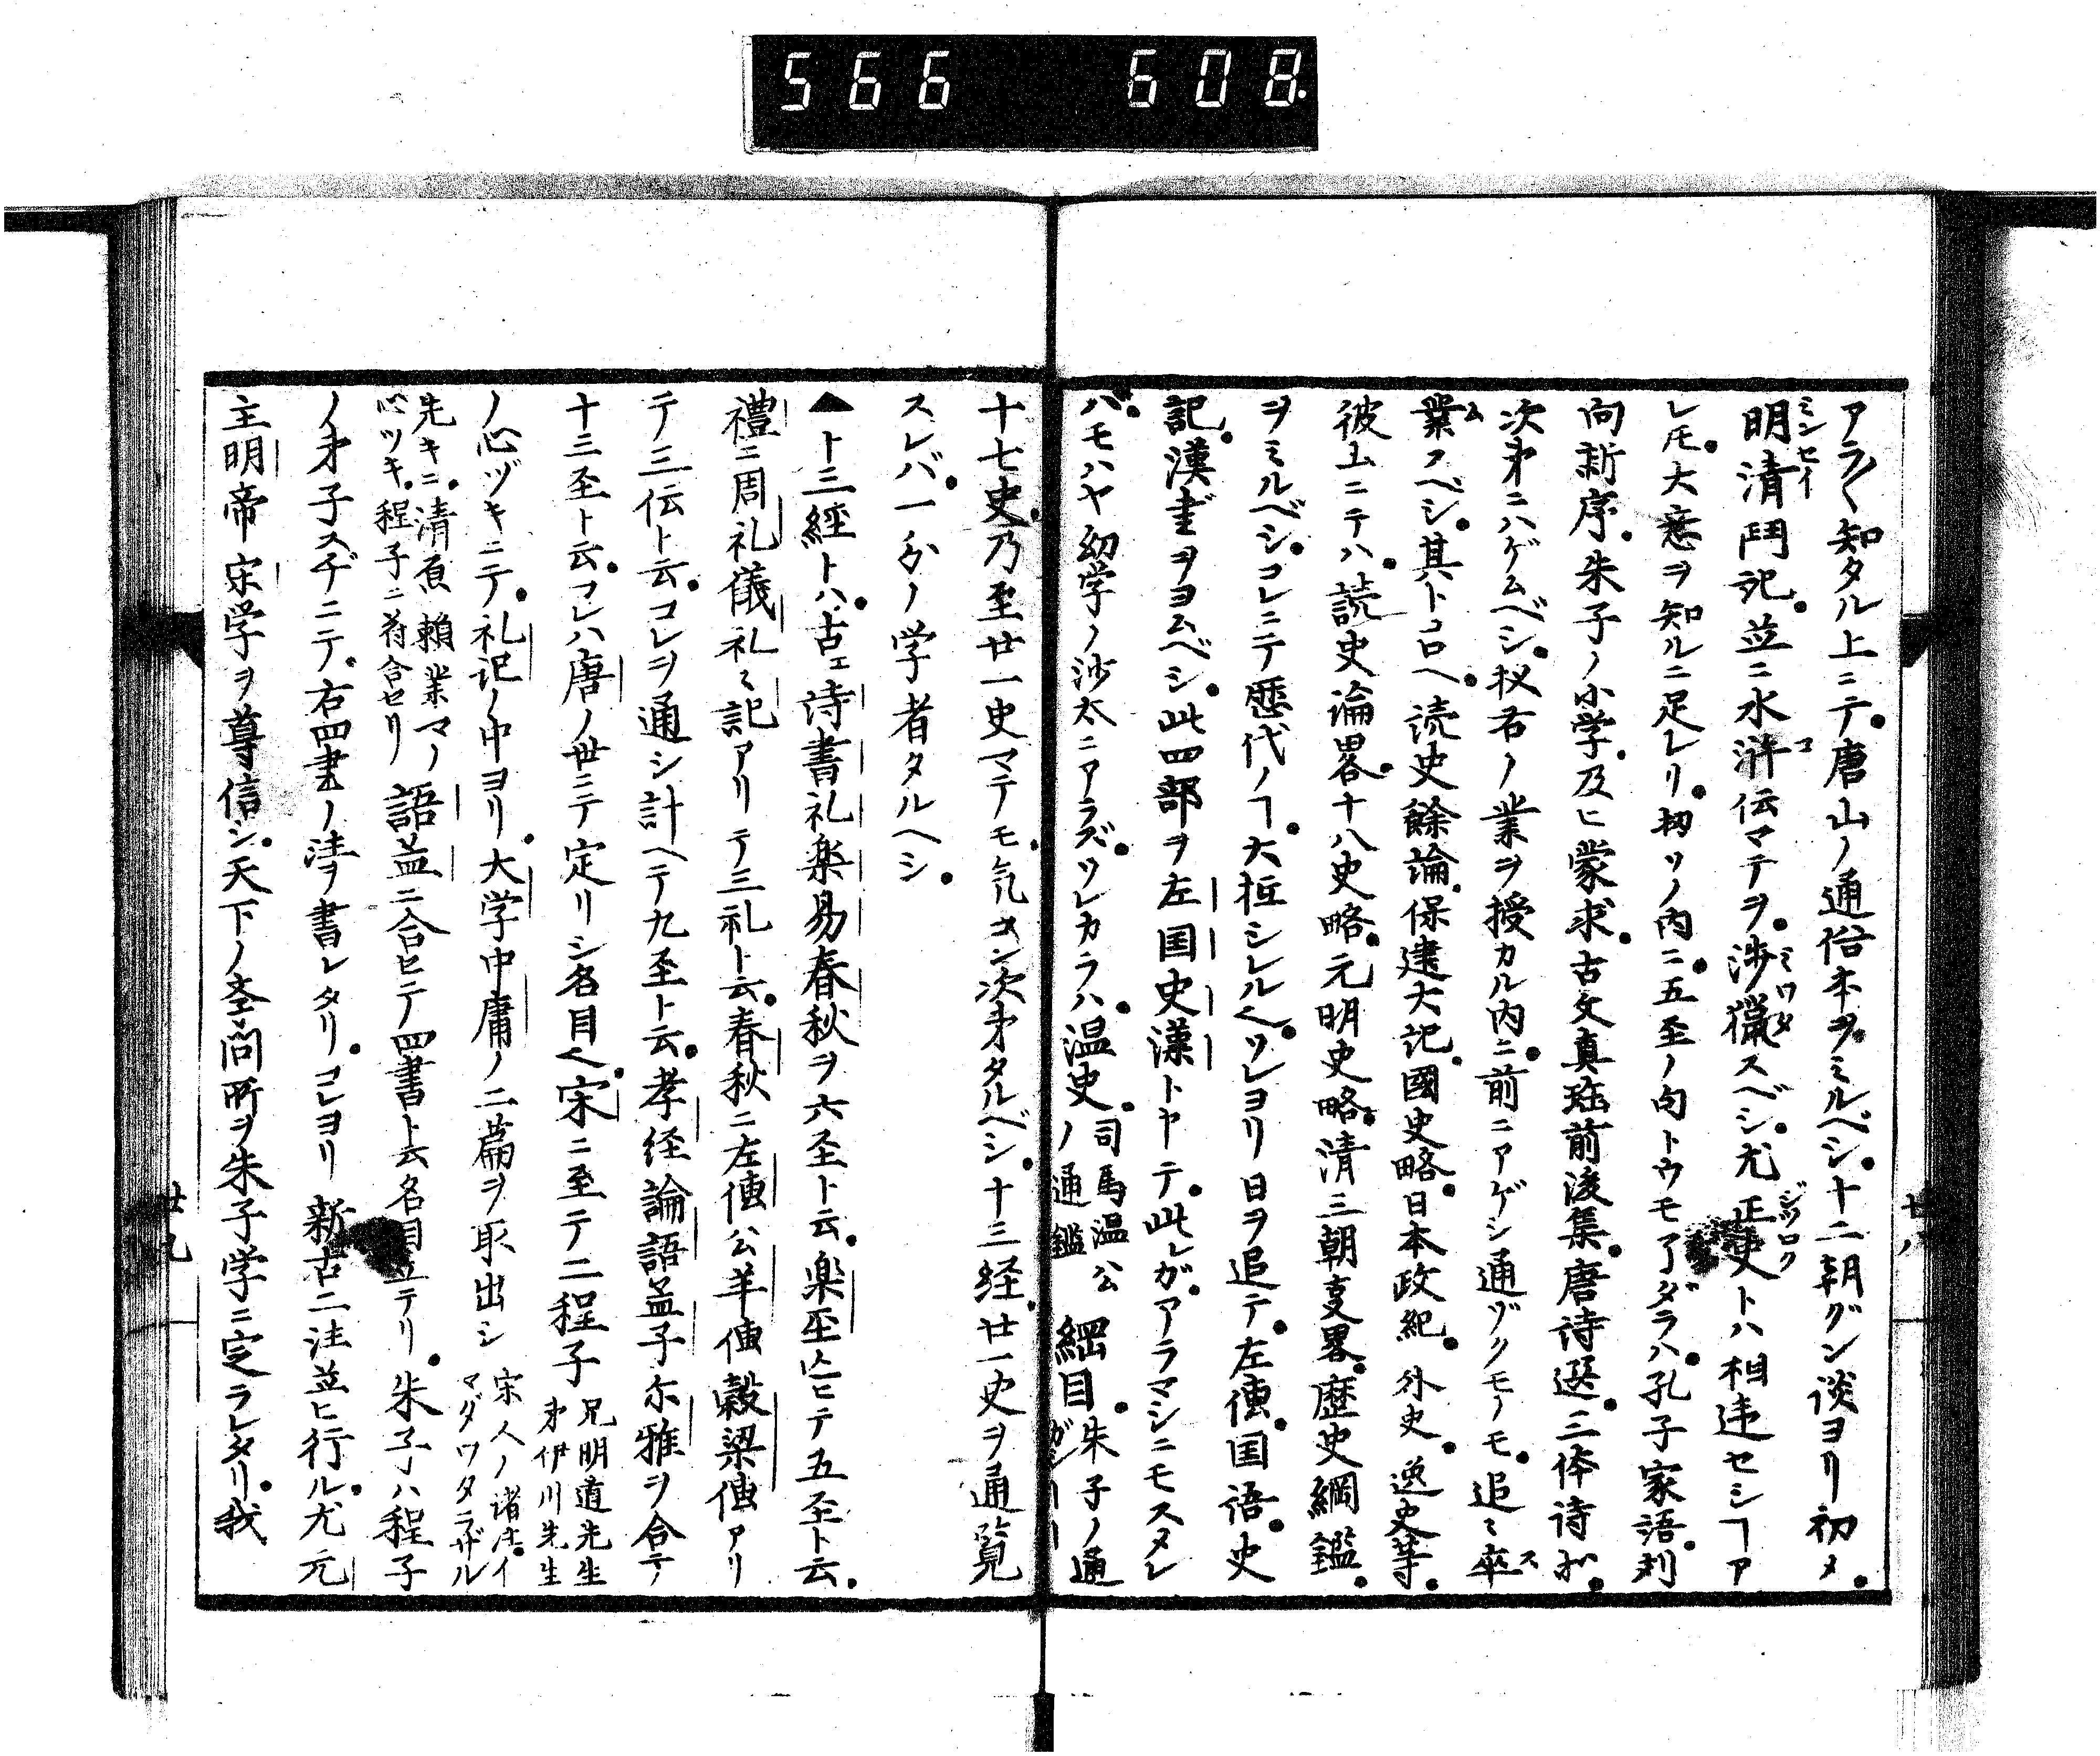 566 608.
アラ〱知タル上ニテ。唐山ノ通俗本ヲミルベシ。十二朝グン談ヨリ初メ。
明清鬥記。並ニ水滸伝マテヲ。渉猟スベシ。尤正史トハ相違セシヿア
レ𪜈。大意ヲ知ルニ足レリ。扨リノ内ニ。五至ノ向トウモ了ダラハ。孔子家語。刘
向新序。朱子ノ小学。及ヒ蒙求。古文真珤前後集。唐詩選。三体詩ホ。
次第ニハゲムベシ。扨右ノ業ヲ授カル内ニ。前ニアゲシ通ヅクモノモ。追〻卒
業スベシ。其トコロヘ。読史餘論。保建大記。國史略。日本政紀。外史。逸史等。
彼土ニテハ。読史論畧。十八史略。元明史略。清三朝変畧。歴史綱鑑。
ヲミルベシ。コレニテ歴代ノヿ。大抵シレルベシ。ソレヨリ日ヲ追テ。左傳。国語。史
記。漢書ヲヨムベシ。此四部ヲ左国史漢トヤテ。此レガ。アラマシニモスタレ
バ。モハヤ幼学ノ沙太ニアラズ。ソレカラハ。温史。司馬温公ノ通鑑 綱目。朱子ノ通
廿八
十七史乃至廿一史マテモ。気コン次第タルベシ。十三経。廿一史ヲ通覧
スレバ。一分ノ学者タルヘシ。
▲十三經トハ。古エ詩書礼楽易春秋ヲ六至ト云。楽至亡ヒテ五至ト云。
禮ニ周礼儀礼〻記アリテ三礼ト云。春秋ニ左傳公羊傳穀梁傳アリ
テ三伝ト云。コレヲ通シ計ヘテ九至ト云。孝経論語孟子尓雅ヲ合テ
十三至ト云。コレハ唐ノ世ニテ定リシ名目也。宋ニ至テ二程子 兄明道先生 弟伊川先生
ノ心ヅキニテ。礼記ノ中ヨリ。大学中庸ノ二篇ヲ取出シ 宋人ノ諸法イマダワタラザル
先キニ。清原頼業マノ心ツキ。程子ニ符合セリ 語孟ニ合ヒテ四書ト云名目立テリ。朱子ハ程子
ノ弟子スヂニテ。右四書ノ注ヲ書レタリ。コレヨリ新古二注並ヒ行ル。尤元
主明帝宋学ヲ尊信シ。天下ノ至問所ヲ朱子学ニ定ラレタリ。我
廿九